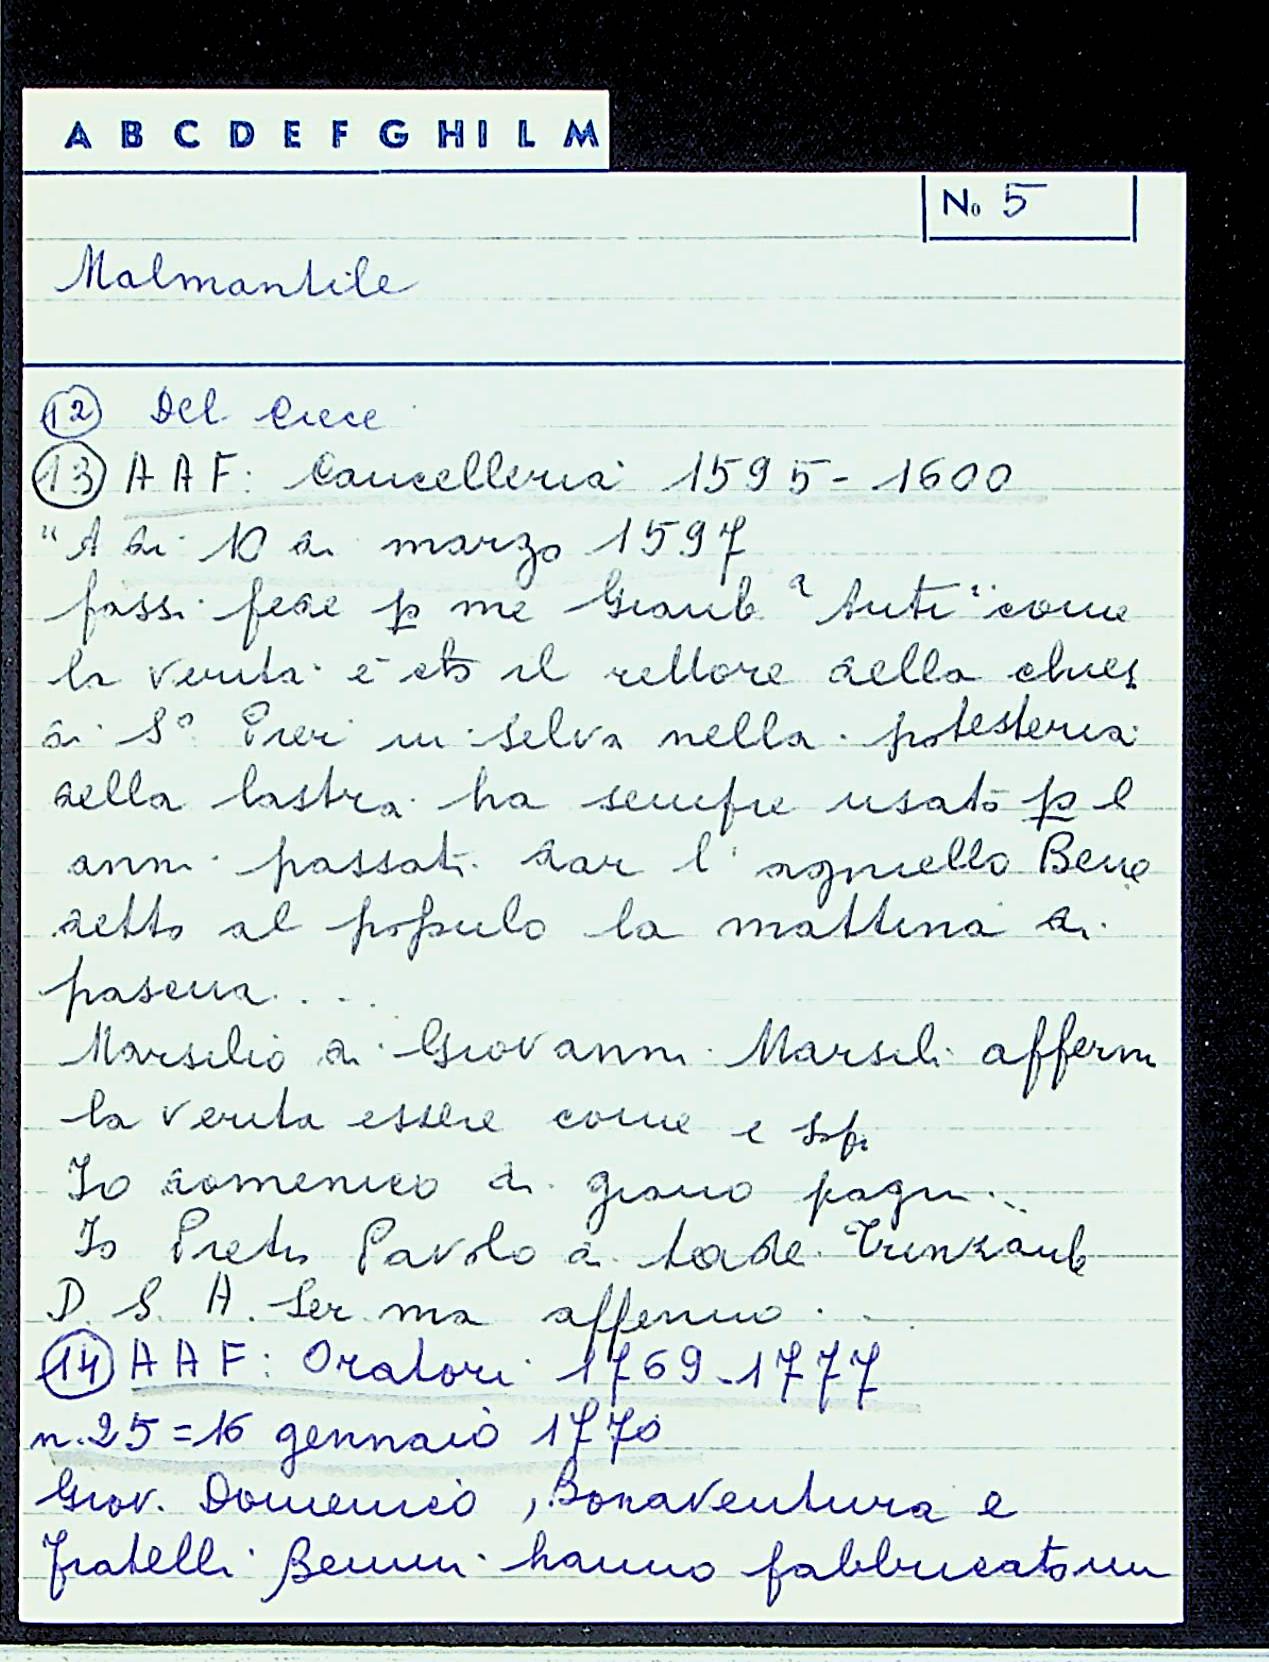 A B C D E F G H I L M
No 5
Malmantile
12 Del Crece
13 AAF: Cancelleria 1595 - 1600
"A di 10 di marzo 1597
fassi fede p me Gianb a Anti" come
la verita è cto il rettore della chies
di So Pier in selva nella potesteria
della lastra ha sempre usato p l
anni passati dar l'agniello Bene
detto al populo la mattina di
pascua...
Marsilio di Giovanni Marsili afferm
la verita essere come e
Io domenico di giano pagni...
Io Pavolo di
D. S. A. Ser ma affermo
14 AAF: Oratori 1769-1777
n.25=16 gennaio 1770
Giov. Domenico, Bonaventura e
fratelli Benini hanno fabbricato un